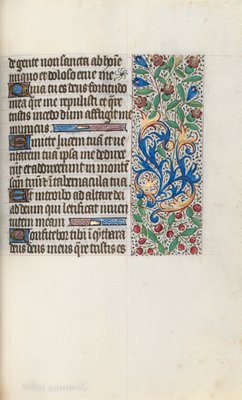 de gente non sancta ab hoĩe
iniquo et doloso erue me
Quia tu es deus fortitudo
mea q̃re me repulisti et q̃re
tristis incedo dum affligit me
inimicus
Emitte lucem tuã et ueri
tatem tuã ipsa me deduxe
rũt et adduxerunt in monte
sanctũ tuũ et in tabernacula tua
Et introibo ad altare dei
ad deum qui letificat iuuen
tutem meam
Confitebor tibi ĩ cythara
deus deus meus q̃re tristis es